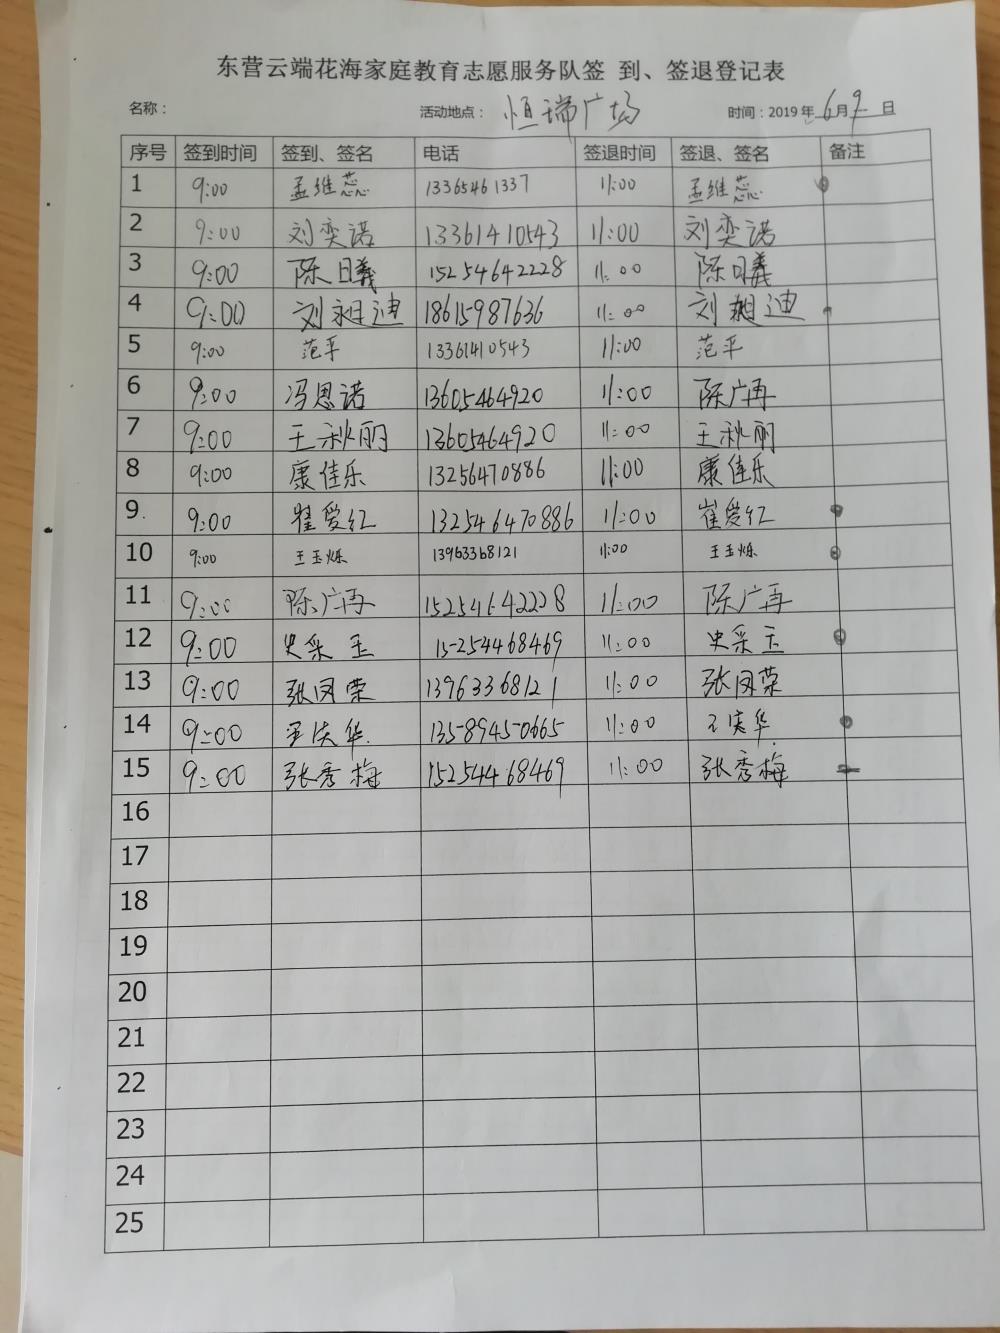 东营云端花海家庭教育志愿服务队签 到、签退登记表
名称： 活动地点： 恒瑞广场 时间：2019 年 6月 9 日
序号 签到时间 签到、签名 电话 签退时间 签退、签名 备注
1 9:00 孟维蕊 13365461337 11:00 孟维蕊
2 9:00 刘奕诺 13361410543 11:00 刘奕诺
3 9:00 陈日曦 15254642228 11:00 陈日曦
4 9:00 刘昶迪 18615987636 11:00 刘昶迪
5 9:00 范平 13361410543 11:00 范平
6 9:00 冯恩诺 13605464920 11:00 陈广再
7 9:00 王秋丽 13605464920 11:00 王秋丽
8 9:00 康佳乐 13256470886 11:00 康佳乐
9. 9:00 崔爱红 132546470886 11:00 崔爱红
10 9:00 王玉烁 13963368121 11:00 王玉烁
11 9:00 陈广再 15254642228 11:00 陈广再
12 9:00 史采玉 15254468469 11:00 史采玉
13 9:00 张凤荣 13963368121 11:00 张凤荣
14 9:00 13589450665 11:00
15 9:00 张秀梅 15254468469 11:00 张秀梅
16
17
18
19
20
21
22
23
24
25